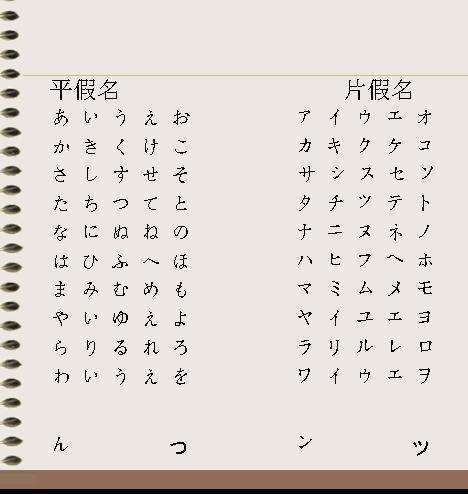 平假名 片假名
あ い う え お ア イ ウ エ オ
か き く け こ カ キ ク ケ コ
さ し す せ そ サ シ ス セ ソ
た ち つ て と タ チ ツ テ ト
な に ぬ ね の ナ ニ ヌ ネ ノ
は ひ ふ へ ほ ハ ヒ フ ヘ ホ
ま み む め も マ ミ ム メ モ
や い ゆ え よ ヤ イ ユ エ ヨ
ら り る れ ろ ラ リ ル レ ロ
わ い う え を ワ イ ゥ エ ヲ
ん つ ン ツ